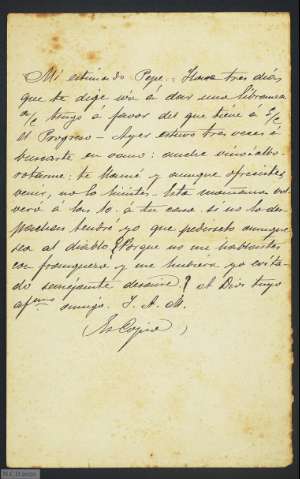 Mi estimado Pepe. Hace tres días
que te dige iva á dar una libranza
a/c tuyo á favor del que tiene á S/C
El Progreso - Ayer estuvo tres veces á
buscarte en vano: anoche vino albo-
rotarme: te llamé y aunque ofreciste
venir, no lo hiciste. Está mañana vol-
verá á las 10 á tu casa si no lo des-
pachas tendré yo que pedirselo aunque
sea al diablo ¿Porque no me hablastes
con franqueza y me hubiera yo evita-
do semejante desaire? A Dios tuyo
afmo. amigo. J. A. M.
(Es Copia)